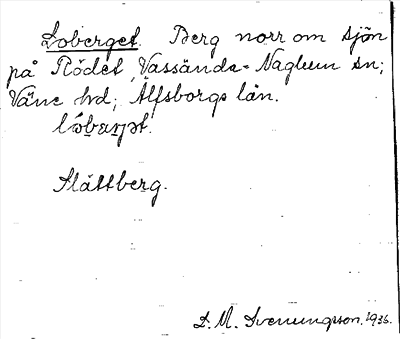 Loberget. Berg norr om sjön
på Rödet, Vassända-Naglum sn;
Väne hd; Älfsborgs län.
Slättberg.
D. M. Svenungsson. 1936.